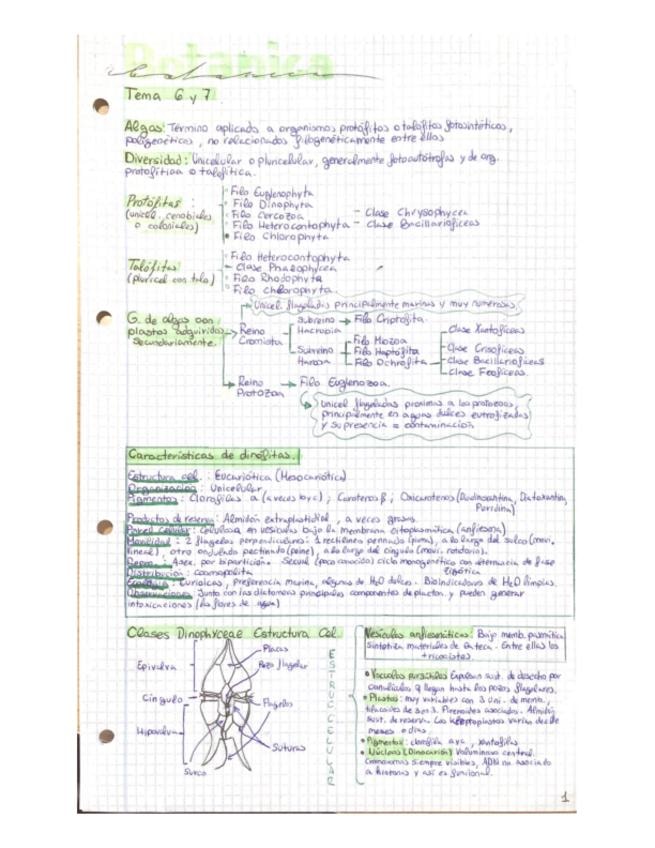 Botanica
Botanica
Tema 6 y 7
Algas: Término aplicado a organismos protófitos o talófitos fotosintéticos,
poligenéticos, no relacionados filogenéticamente entre ellos
Diversidad: Unicelular o pluricelular, generalmente fotoautótrofas y de org.
protofítica o talofítica.
Protófitas:
(unicel. cenobiales
o coloniales)
Filo Euglenophyta
Filo Dinophyta
Filo Cercozoa
Filo Heterocontophyta
- Clase Chrysophycea
- Clase Bacillariofíceas
Filo Chlorophyta
Talófitas
(pluricel con talo)
Filo Heterocontophyta
- Clase Phaeophycea
Filo Rhodophyta
Filo Chlorophyta.
Unicel. flageladas principalmente marinas y muy numerosas.
G. de algas con
plastos adquiridos
secundariamente.
Reino
Cromista
Subreino
Hacrobia
Filo Criptofita.
Subreino
Harosa
Filo Miozoa
Filo Haptófita
Filo Ochrofita
Clase Xantofíceas
Clase Crisofíceas
Clase Bacillariofíceas
Clase Feofíceas.
Reino
Protozoa
Filo Euglenozoa.
Unicel flageladas proximas a los protozoos,
principalmente en aguas dulces eutrofizadas
y su presencia = contaminación
Características de dinófitas.
Estructura cel. : Eucariótica (Mesocariótica)
Organización : Unicelular.
Pigmentos: Clorofilas a (a veces b y c) ; Carotenos β ; Oxicarotenos (Dinoxantina, Diatoxantina,
Peridina)
Productos de reserva: Almidón extraplastidial, a veces grasas.
Pared celular: Celulosa en vesículas bajo la membrana citoplasmática (anfiesma)
Movilidad: 2 flagelos perpendiculares: 1 rectilineo pennado (pluma), a lo largo del sulco (movi.
lineal) ; otro ondulado pectinado (peine), a lo largo del cingulo (movi. rotatorio).
Repro. : Asex. por bipartición. Sexual (poco conocido) ciclo monogenético con alternancia de fase
zigótica
Distribución : Cosmopolita
Ecología : Eurioicas, preferencia marina, algunas de H2O dulces. Bioindicadores de H2O limpias.
Observaciones: Junto con las diatomeas principales componentes de plancton. y pueden generar
intoxicaciones (las flores de agua)
Clases Dinophyceae Estructura Cel.
Placas
Epivalva
Poro flagelar
Cingulo
Flagelos
Hipovalva
Suturas
Surco
ESTRUC. CELULAR
Vesículas anfiesmáticas: Bajo memb. plasmática
sintetiza materiales de la teca. Entre ellas los
tricocistes.
• Vacuolas pulsátiles Expulsan sust. de desecho por
canalículos q llegan hasta los poros flagelares.
• Plastos: muy variables con 3 uni. de memb.,
tilacoides de 3 en 3. Pirenoides asociados. Almidón
sust. de reserva. Los kleptoplastos varían desde
meses o días.
• Pigmentos: clorofila a y c, xantofilas
• Núcleos (Dinocarion) Voluminoso central.
Cromosomas siempre visibles, ADN no asociado
a histonas y así es funcional.
1